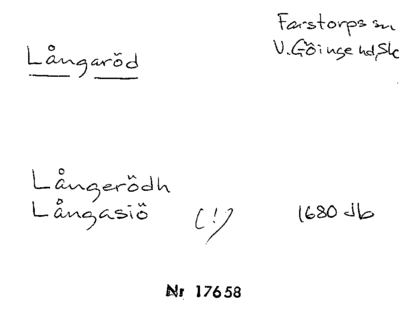 Farstorps sn
Långaröd
V. Göinge hd, Sk
Långerödh
Långasiö (!) 1680 Jb
Nr 17658